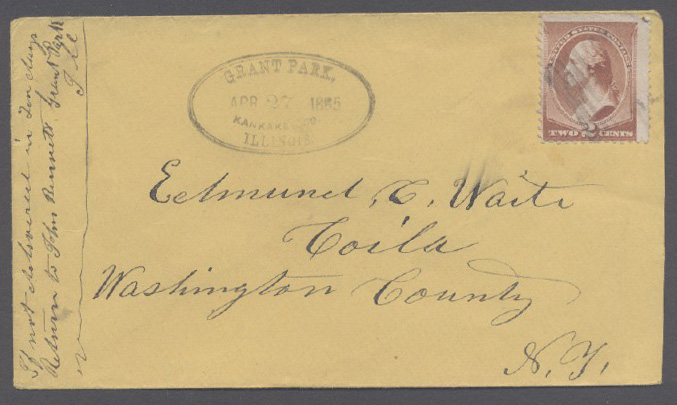 If not delivered in Ten days
Return to John Bennett, Grant Park
Ill
GRANT PARK,
APR 27 1885
KANKAKEE CO
ILLINOIS
UNITED STATES POSTAGE
TWO 2 CENTS
Edmund, C, Waite
Coila
Washington County
N. Y.